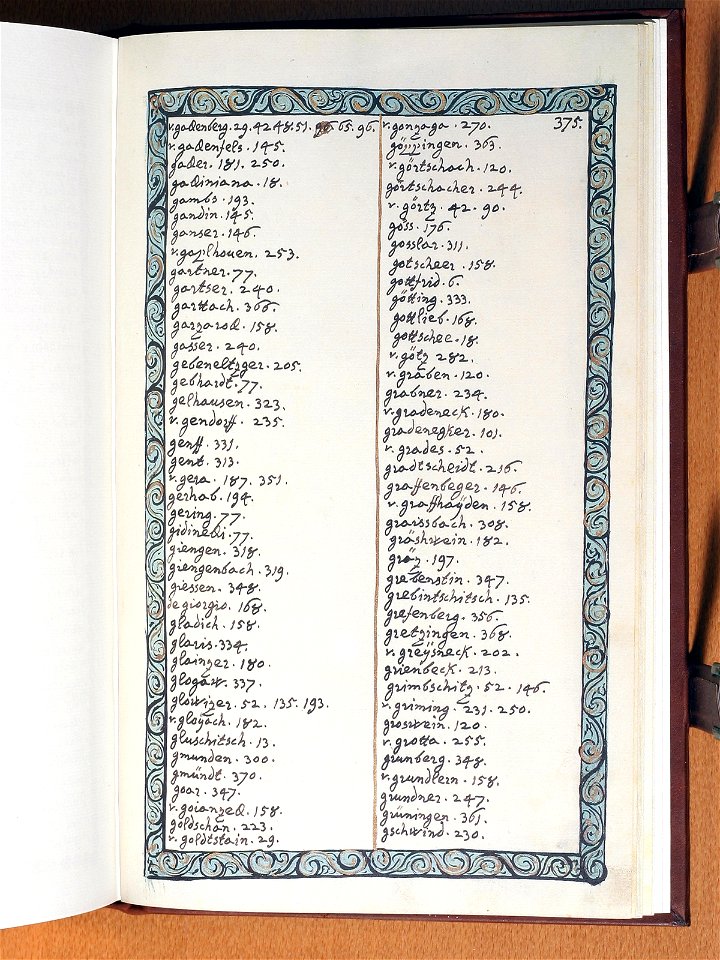 v. gadenberg. 29. 42 48. 51. 65. 96.
v. gadenfels. 145.
gader. 181. 250.
gadiniana. 18.
gambs. 193.
gandin. 145.
ganser. 146.
253.
gartner. 77.
gartser. 240.
366.
158.
gasser. 240.
gebeneltzger. 205.
gebhardt. 77.
gelhausen. 323.
v. gendorff. 235.
genff. 331.
gent. 313.
v. gera. 187. 351.
gerhab. 194.
gering. 77.
77.
giengen. 318.
giengenbach. 319.
giessen. 348.
de giorgio. 168.
gladich. 158.
glaris. 334.
glainzer. 180.
glogaw. 337.
glowizer. 52. 135. 193.
v. gloÿach. 182.
gluschitsch. 13.
gmunden. 300.
gmündt. 370.
goar. 347.
v. 158.
goldschan. 223.
v. goldtstain. 29.
375.
v. gonzaga. 270.
göppingen. 363.
v. görtschach. 120.
görtschacher. 244.
v. görtz. 42. 90.
göss. 176.
gosslar. 311.
gotscheer. 158.
gottfrid. 6.
götting. 333.
gottlieb. 168.
gottschee. 18.
v. götz 282.
v. graben. 120.
grabner. 234.
v. gradeneck. 180.
gradenegker. 101.
v. grades. 52.
gradtscheidt. 216.
graffenbeger. 146.
v. graffhaÿden. 158.
graissbach. 308.
gräshwein. 182.
gräz. 197.
grebenstin. 347.
grebintschitsch. 135.
grefenberg. 356.
gretzingen. 368.
v. greÿsneck. 202.
grienbeck. 213.
grimbschitz. 52. 146.
v. griming. 231. 250.
groswein. 120.
v. grotta. 255.
grunberg. 348.
v. grundlern. 158.
grundner. 247.
grüningen. 361.
gschwind. 230.